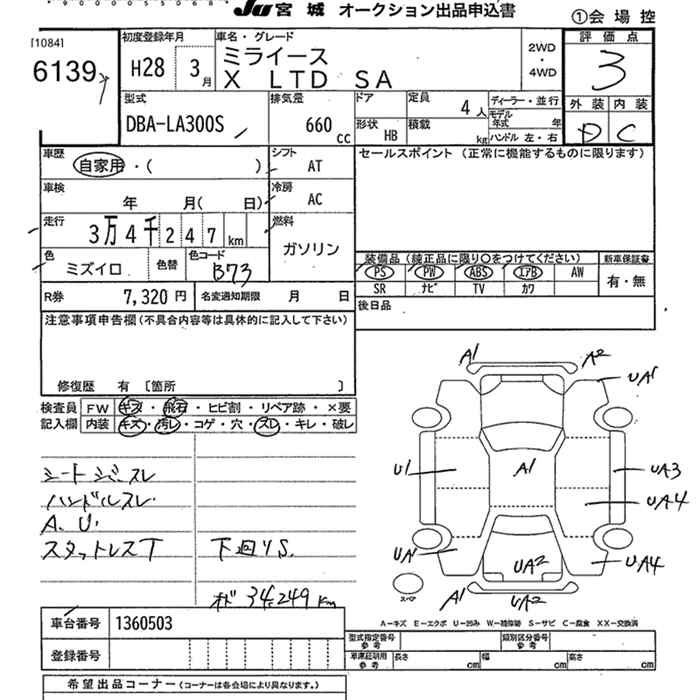 JU 宮城 オークション出品申込書
①会場控
[1084]
6139
初度登録年月 H28 3月
車名・グレード
ミライース
X LTD SA
2WD
・
4WD
評価点
3
外装 内装
D C
型式
DBA-LA300S
排気量
660 cc
ドア
形状 HB
定員 4人
積載 kg
ディーラー・並行
モデル年式 年
ハンドル 左・右
車歴 自家用・( )
シフト AT
車検 年 月( 日)
冷房 AC
走行 3万4千247km
燃料 ガソリン
色 ミズイロ
色替
色コード B73
R券 7,320円
名変通知期限 月 日
セールスポイント (正常に機能するものに限ります)
装備品 (純正品に限り○をつけてください)
新車保証書
PS PW ABS エアB AW
有・無
SR ナビ TV カワ
後日品
注意事項申告欄(不具合内容等は具体的に記入して下さい)
修復歴 有 〔箇所 〕
検査員 FW キズ・飛石・ヒビ割・リペア跡・×要
記入欄 内装 キズ・汚レ・コゲ・穴・スレ・キレ・破レ
ハンドルスレ
A、U
スタットレスT
下回りS.
オド 34,249km
A1
A2
UA1
U1
A1
UA3
UA4
UA1
UA2
UA4
スペア
A1
UA2
A―キズ E―エクボ U―凹み W―補修跡 S―サビ C―腐食 XX―交換済
車台番号 1360503
登録番号
型式指定番号 参考
類別区分番号 参考
車庫証明用 参考
長さ cm
幅 cm
高さ cm
希望出品コーナー(コーナーは各会場により異なります。)